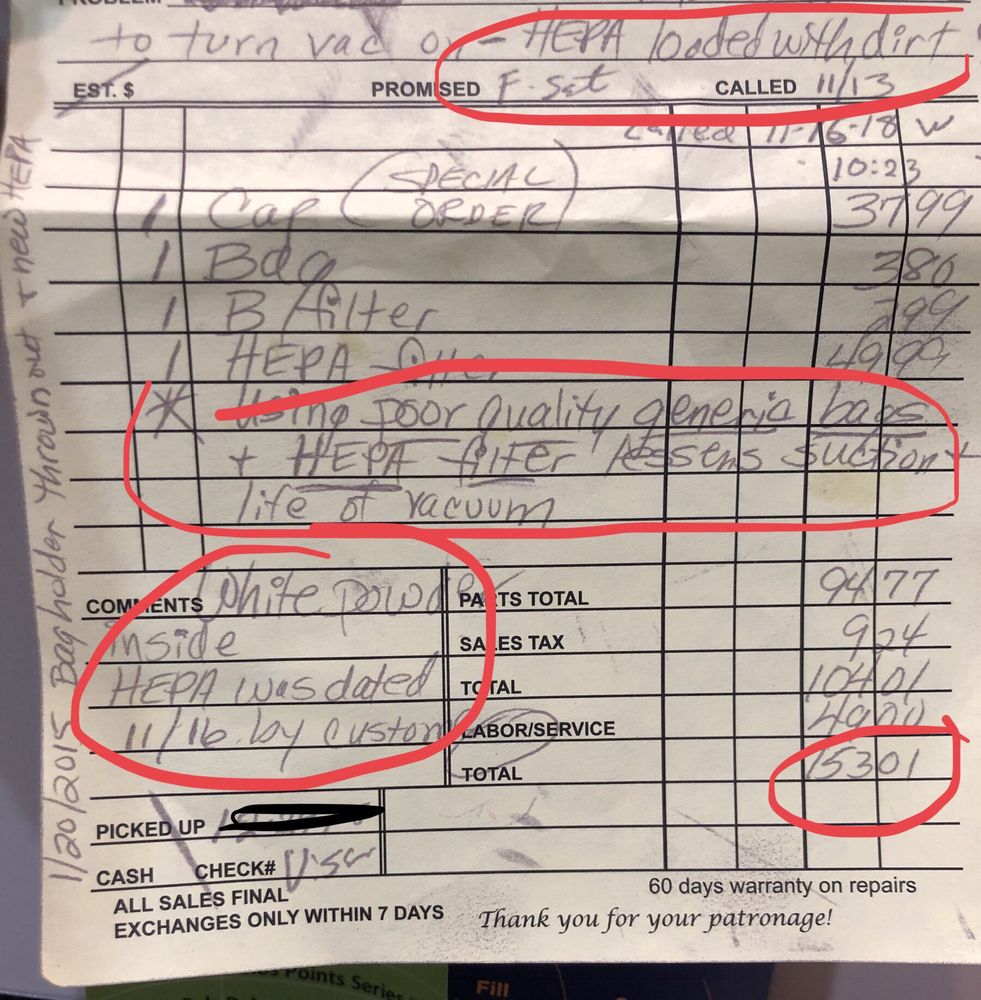 PROBLEM
to turn vac on - HEPA loaded with dirt
EST. $ PROMISED F-Sat CALLED 11/13
Called 11-16-18 W
10:23
1 Cap (SPECIAL ORDER) 37 99
1 Bag 3 80
1 B filter 2 99
1 HEPA filter 49 99
* Using poor quality generic bags
+ HEPA filter lessens suction +
life of vacuum
COMMENTS White powder
inside
HEPA was dated
11/16 by customer
PARTS TOTAL 94 77
SALES TAX 9 24
TOTAL 104 01
LABOR/SERVICE 49 00
TOTAL 153 01
PICKED UP
CASH CHECK# Visa
ALL SALES FINAL
EXCHANGES ONLY WITHIN 7 DAYS
60 days warranty on repairs
Thank you for your patronage!
1/20/2015 Bagholder thrown out + new HEPA
Points Series
Fill